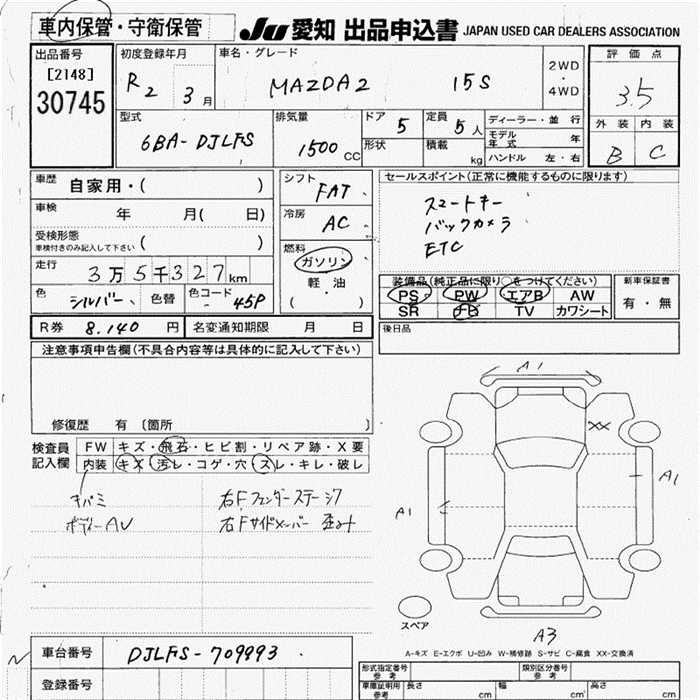 車内保管・守衛保管
JU 愛知 出品申込書 JAPAN USED CAR DEALERS ASSOCIATION
出品番号
[2148]
30745
初度登録年月
R2 3月
車名・グレード
MAZDA2 15S
2WD
・
4WD
評価点
3.5
外装 内装
B C
型式
6BA-DJLFS
排気量
1500cc
ドア 5
形状
定員 5人
積載 kg
ディーラー・並行
モデル年式 年
ハンドル 左・右
車歴 自家用・( )
車検 年 月( 日)
受検形態
車検付きのみ記入して下さい ( )
走行 3万5千327km
色 シルバー 色替 色コード 45P
R券 8,140円 名変通知期限 月 日
シフト FAT
冷房 AC
燃料
ガソリン
軽・油
( )
セールスポイント(正常に機能するものに限ります)
スマートキー
バックカメラ
ETC
装備品(純正品に限り○をつけてください)
PS PW エアB AW
SR ナビ TV カワシート
新車保証書
有・無
後日品
注意事項申告欄(不具合内容等は具体的に記入して下さい)
修復歴 有〔箇所 〕
検査員記入欄
FW キズ・飛石・ヒビ割・リペア跡・X要
内装 キズ・汚レ・コゲ・穴・スレ・キレ・破レ
キバミ
ボディーAU
右Fフェンダーステージ
右Fサイドメンバー 歪み
A1
XX
A1
A1
スペア
A3
A-キズ E-エクボ U-凹み W-補修跡 S-サビ C-腐食 XX-交換済
車台番号 DJLFS-709993
登録番号
型式指定番号 参考
類別区分番号 参考
車庫証明用 参考 長さ cm 幅 cm 高さ cm